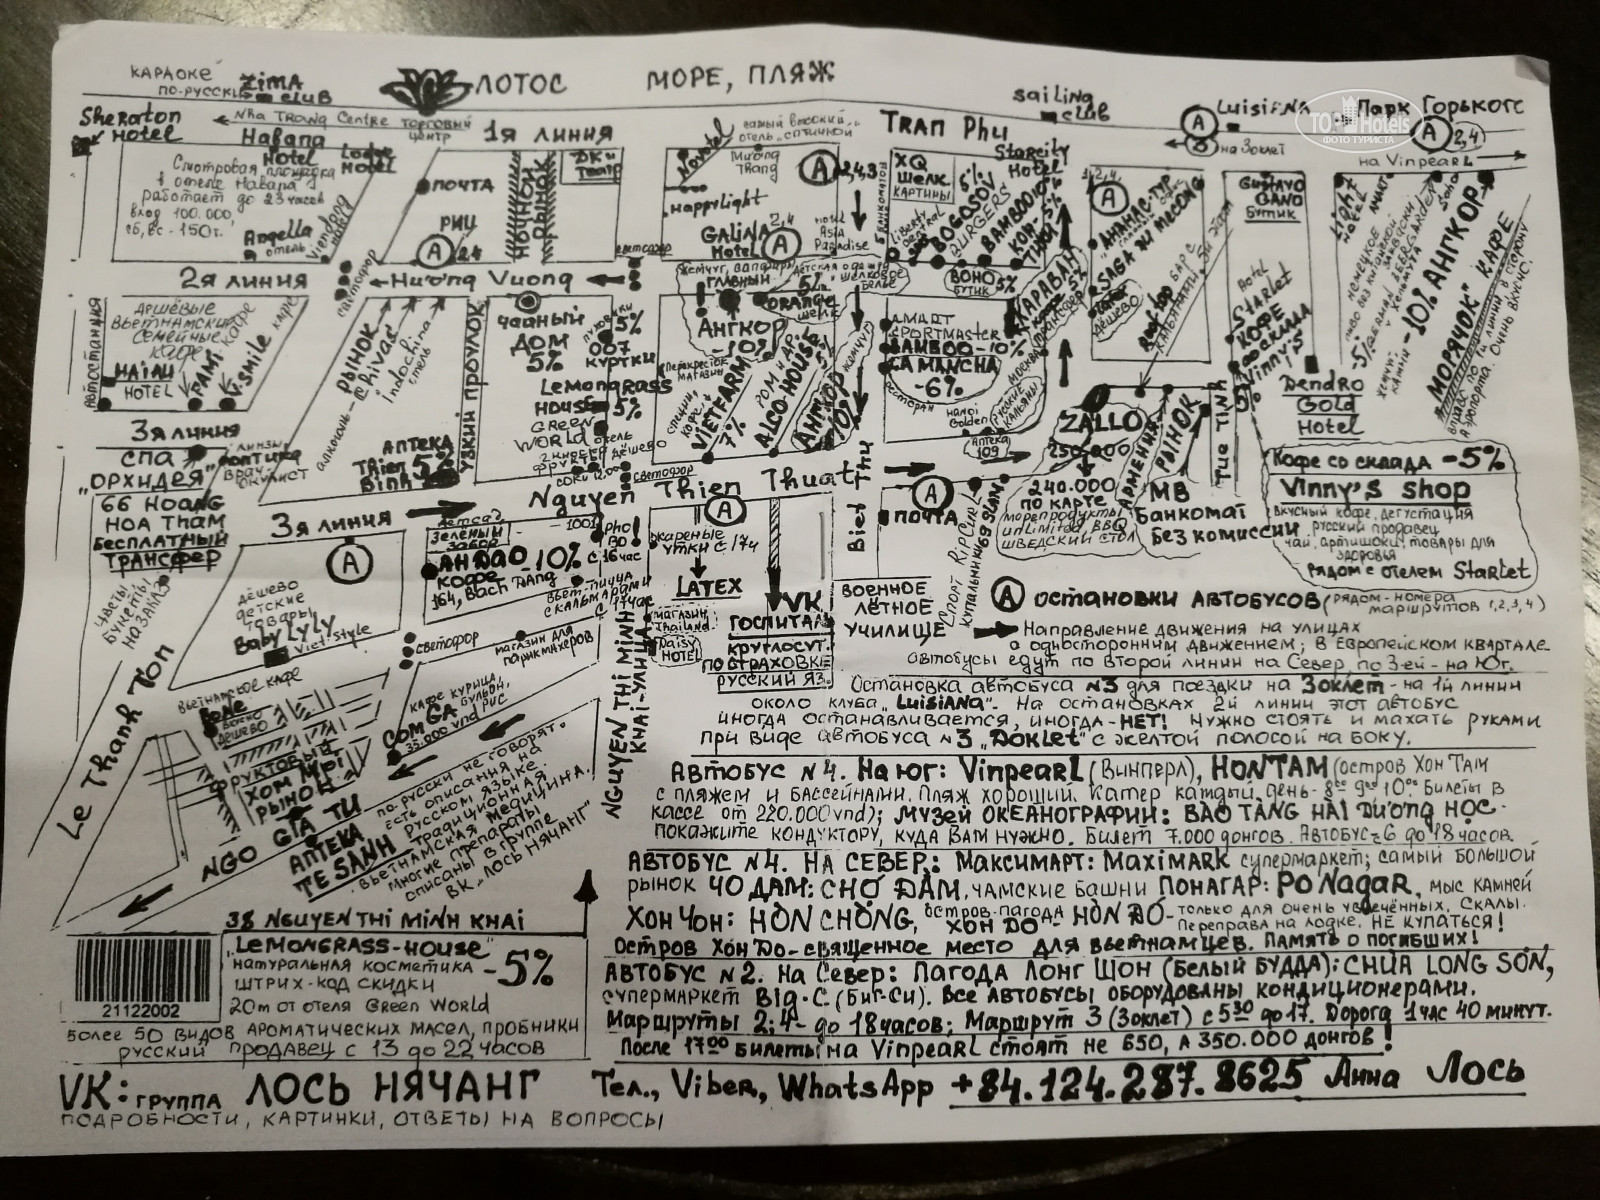 КАРАОКЕ
ПО-РУССКИ
ZIMA
CLUB
ЛОТОС
МОРЕ, ПЛЯЖ
SAILING
CLUB
LUISIENA
ПАРК ГОРЬКОГО
Sheraton
Hotel
Nha Trang Centre ТОРГОВЫЙ
ЦЕНТР
1Я ЛИНИЯ
TRAN Phu
А
3 на Зоклет
А 2,4
на Vinpearl
Habana
Hotel
Lodge
Hotel
Смотровая площадка
в отеле Habana
работает до 23 часов
вход 100.000,
сб, вс - 150т.
Angella
отель
ПОЧТА
РИЦ
А 24
НОЧНОЙ
РЫНОК
Novotel
Mường
Thang
HappyLight
GALINA
Hotel
А 2,4
А 2,4,3
Hotel
Asia
Paradise
XQ
ШЕЛК.
КАРТИНЫ
5%
BOGOSOV
BURGERS
BAMBOO
Starcity
Hotel
БОНО
БУТИК
5%
КАРАВАН
А
АНАНАС-ТУР
SAGA ЭЙ MECONG
GUSTAVO
GANO
БУТИК
Light
Hotel
-10% АНГКОР
"МОРЯЧОК" КАФЕ
2Я ЛИНИЯ
светофор
Hương Vuong
светофор
АВТОСТАНЦИЯ
ДЕШЁВЫЕ
ВЬЕТНАМСКИЕ
СЕМЕЙНЫЕ
КАФЕ
HAIAU
HOTEL
FAM. кафе
V.SMILE
РЫНОК
Rivado
Indochina
отель
УЗКИЙ ПРОУЛОК
ЧАЙНЫЙ
ДОМ
5%
ПУХОВИКИ
5%
007
КУРТКИ
LEMONGRASS
HOUSE 5%
GREEN
WORLD отель
ГЛАВНЫЙ
АНГКОР
-10%
5%
ORANGE
ШЕЛК
VIETFARM
7%
ALGO-HOUSE
5%
АНГКОР
10%
A.MART
SPORTMASTER
BAMBOO-10%
LA MANCHA
-6%
РЕСТОРАН
HANOI
Golden
АПТЕКА
109
ДЁШЕВО
ROOF TOP БАР С
КАЛЬЯНАМИ, 5й этаж
Hotel
Starlet
КОФЕ
со склада
Vinny's
5%
Dendro
Gold
Hotel
ZALLO
250.000
240.000
ПО КАРТЕ
МОРЕПРОДУКТЫ
UNLIMITED, BBQ
ШВЕДСКИЙ СТОЛ
АРМЕНИЯ
РЫНОК
Tue Tinh
МВ
БАНКОМАТ
БЕЗ КОМИССИИ
3Я ЛИНИЯ
СПА
"ОРХИДЕЯ"
66 HOANG
HOA THAM
БЕСПЛАТНЫЙ
ТРАНСФЕР
ЛИНЗЫ
ОПТИКА
ВРАЧ-
ОКУЛИСТ
АПТЕКА
Thien 52
Binh
светофор
Nguyen Thien Thuat
Biet Thu
А
ПОЧТА
СПОРТ RIPCURL
КУПАЛЬНИКИ 69 SLAM
Кофе со склада -5%
Vinny's shop
ВКУСНЫЙ КОФЕ, ДЕГУСТАЦИЯ
РУССКИЙ ПРОДАВЕЦ
ЧАЙ, АРТИШОКИ, ТОВАРЫ ДЛЯ
ЗДОРОВЬЯ
РЯДОМ С ОТЕЛЕМ Starlet
3Я ЛИНИЯ
А
ДЕТСАД
ЗЕЛЕНЫЙ
ЗАБОР
АНДАО -10%
КОФЕ
164, BACH DANG
Pho
BO
С 16 час
ВЬЕТ. ПИЦЦА
С КАЛЬМАРАМИ
С 17 час
ЖАРЕНЫЕ
УТКИ С 17ч
А
LATEX
МАГАЗИН
THAILAND
Daisy
HOTEL
VK
ГОСПИТАЛЬ
КРУГЛОСУТ.
ПО СТРАХОВКЕ
РУССКИЙ ЯЗ.
ВОЕННОЕ
ЛЁТНОЕ
УЧИЛИЩЕ
ЦВЕТЫ,
БУКЕТЫ
НА ЗАКАЗ
ДЁШЕВО
ДЕТСКИЕ
ТОВАРЫ
BABY LYLY
Viet Style
СВЕТОФОР
МАГАЗИН ДЛЯ
ПАРИКМАХЕРОВ
Le Thanh Ton
ВЬЕТНАМСКОЕ КАФЕ
ВКУСНО
ДЁШЕВО
КАФЕ КУРИЦА,
БУЛЬОН,
РИС
COM GA
35.000 vnd
ФРУКТОВЫЙ
ХОМ MỚI
РЫНОК
NGO GIA TU
АПТЕКА
TESANH
ПО-РУССКИ НЕ ГОВОРЯТ.
ЕСТЬ ОПИСАНИЯ НА
РУССКОМ ЯЗЫКЕ.
ТРАДИЦИОННАЯ
ВЬЕТНАМСКАЯ МЕДИЦИНА.
МНОГИЕ ПРЕПАРАТЫ
ОПИСАНЫ В ГРУППЕ
ВК "ЛОСЬ НЯЧАНГ"
NGUYEN THI MINH
KHAI-УЛИЦА
А ОСТАНОВКИ АВТОБУСОВ (РЯДОМ-НОМЕРА
МАРШРУТОВ 1,2,3,4)
Направление движения на улицах
с односторонним движением; в Европейском квартале
автобусы едут по второй линии на Север, по 3-ей - на Юг.
Остановка автобуса №3 для поездки на Зоклет - на 1й линии
около клуба "LUISIANA". На остановках 2й линии этот автобус
иногда останавливается, иногда-НЕТ! Нужно стоять и махать руками
при виде автобуса №3 "Доклет" с желтой полосой на боку.
Автобус №4. На юг: Vinpearl (Винперл), HONTAM (остров Хон Там
с пляжем и бассейнами. Пляж хороший. Катер каждый день - 8⁰⁰ до 10⁰⁰. Билеты в
кассе от 220.000vnd); Музей океанографии: BAO TÀNG HAI DƯƠNG HỌC -
покажите кондуктору, куда Вам нужно. Билет 7.000 донгов. Автобус с 6 до 18 часов.
АВТОБУС №4. НА СЕВЕР: Максимарт: MAXIMARK супермаркет; самый большой
рынок ЧО ДАМ: CHỢ ĐÂM, чамские башни ПОНАГАР: PO Nagar, мыс камней
Хон Чон: HÒN CHÒNG, остров-пагода ХОН ДО - HÒN ĐỎ - только для очень увлечённых. Скалы.
Переправа на лодке. НЕ КУПАТЬСЯ!
Остров Хон До-священное место для вьетнамцев. Память о погибших!
Автобус №2. На Север: Пагода Лонг Шон (Белый Будда): CHUA LONG SON,
супермаркет Big-C (Биг-Си). Все автобусы оборудованы кондиционерами.
Маршруты 2;4- до 18 часов; Маршрут 3 (Зоклет) с 5³⁰ до 17. Дорога 1 час 40 минут.
После 17⁰⁰ билеты на Vinpearl стоят не 650, а 350.000 донгов!
38 NGUYEN THI MINH KHAI
"LEMONGRASS-HOUSE"
НАТУРАЛЬНАЯ КОСМЕТИКА -5%
ШТРИХ-КОД СКИДКИ
20м от отеля Green World
21122002
БОЛЕЕ 50 ВИДОВ АРОМАТИЧЕСКИХ МАСЕЛ, ПРОБНИКИ
РУССКИЙ ПРОДАВЕЦ С 13 до 22 ЧАСОВ
VK: ГРУППА ЛОСЬ НЯЧАНГ
Тел., Viber, WhatsApp +84.124.287.8625 Анна Лось
ПОДРОБНОСТИ, КАРТИНКИ, ОТВЕТЫ НА ВОПРОСЫ
TO Hotels
ФОТО ТУРИСТА